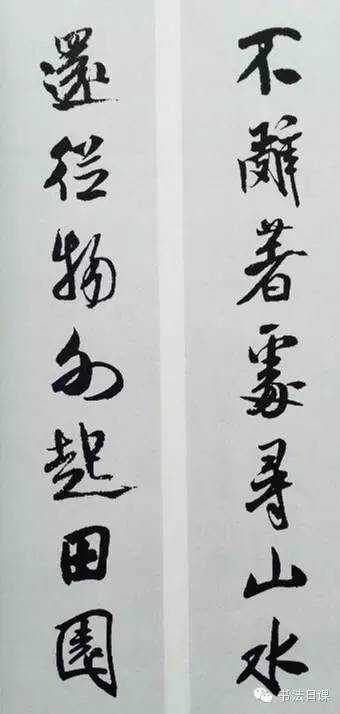 不辭著處尋山水
還從物外起田園
书法日课